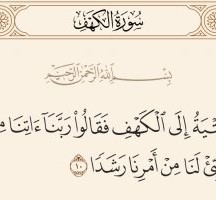 سُورَةُ الكَهْفِ
بِسْمِ اللَّهِ الرَّحْمَٰنِ الرَّحِيمِ
إِلَى ٱلْكَهْفِ فَقَالُوا۟ رَبَّنَآ ءَاتِنَا
لَنَا مِنْ أَمْرِنَا رَشَدًا ١٠